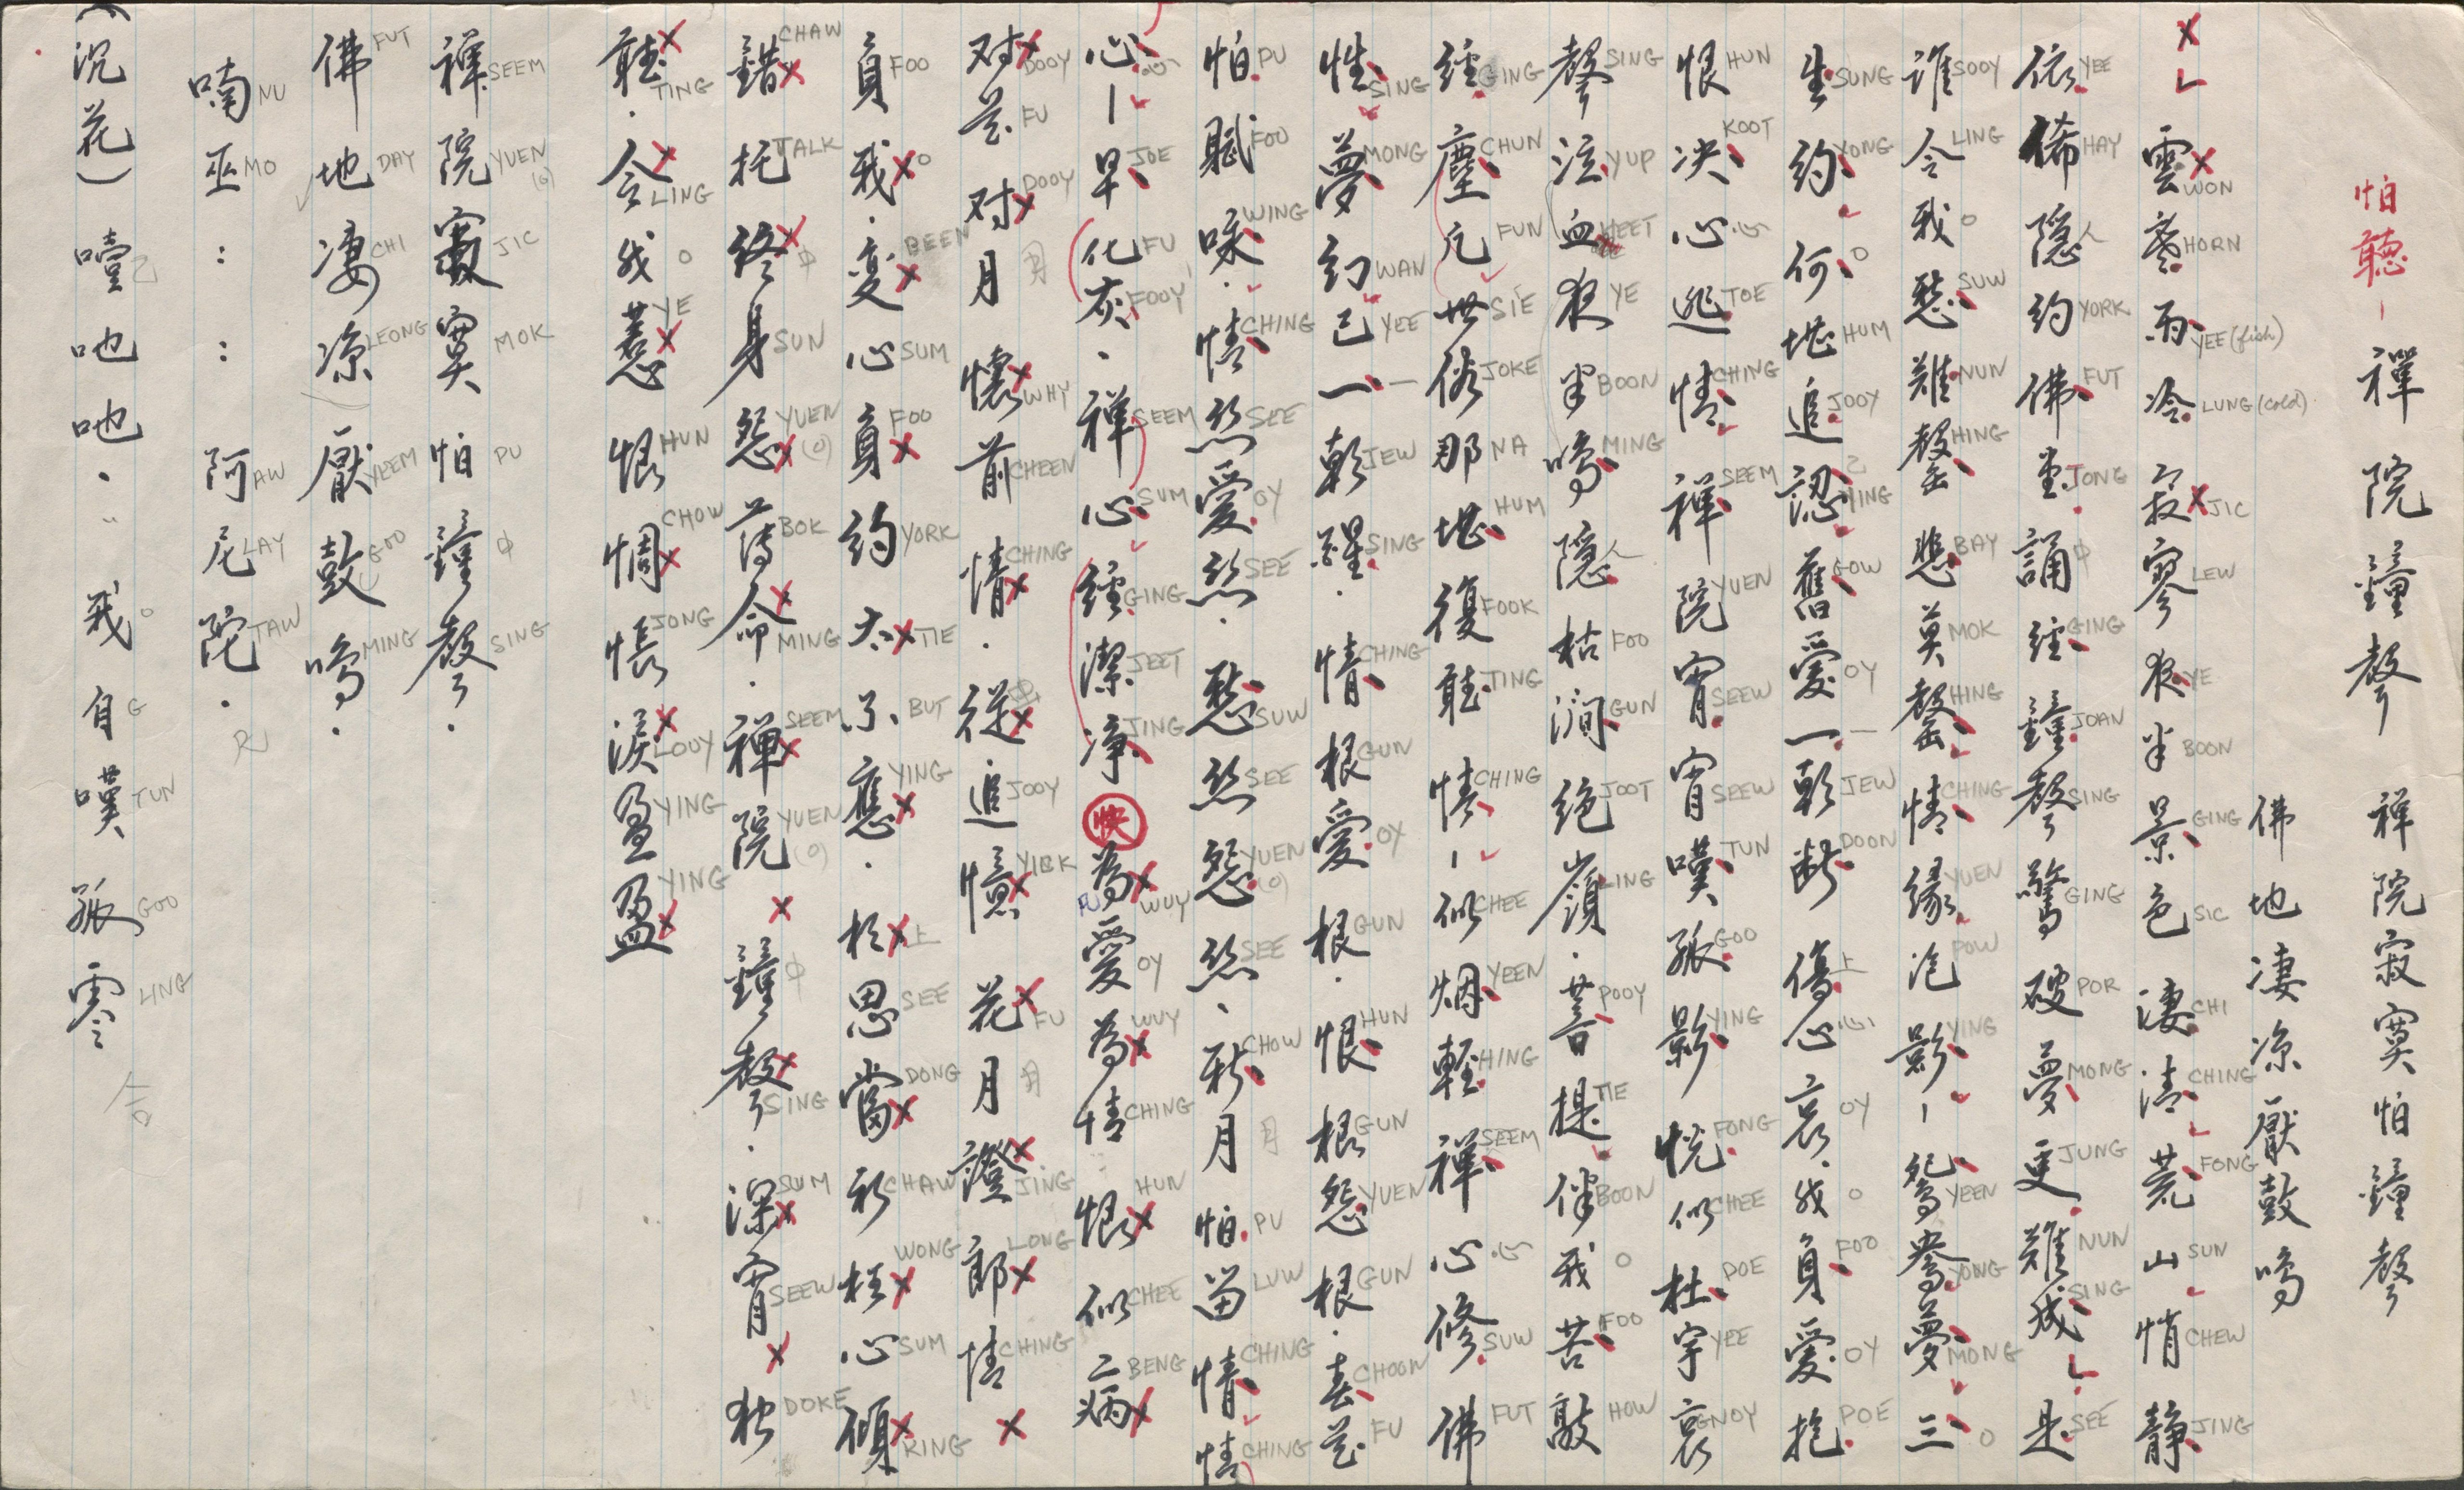 怕聽-禪院鐘聲 禪院寂寞怕鐘聲
佛地凄凉厭鼓鳴
X L 雲X WON 寒 HORN 雨 YEE (fish) 冷 LUNG (cold) 寂X JIC 寥 LEW 夜 YE 半 BOON 景 GING 色 SIC 淒 CHI 清 CHING 荒 FONG 山 SUN 悄 CHEW 静 JING
依 YEE 稀 HAY 隱 人 約 YORK 佛 FUT 堂 JONG 誦 中 經 GING 鐘 JOAN 聲 SING 驚 GING 破 POR 夢 MONG 更 JUNG 難 NUN 成 SING L 是 SEE
誰 SOOY 令 LING 我 O 愁 SUW 難 NUN 罄 HING 悲 BAY 莫 MOK 罄 HING 情 CHING 緣 YUEN 泡 POW 影 YING - 鴛 YEEN 鴦 YONG 夢 MONG 三 O
生 SUNG 約 YONG 何 O 堪 HUM 追 JOOY 認 己 YING 舊 GOW 愛 OY 一 一 朝 JEW 断 DOON 傷 上 心 心 哀 OY . 我 O 負 FOO 愛 OY 抱 POE
恨 HUN 决 KOOT 心 心 逃 TOE 情 CHING 禪 SEEM 院 YUEN 宵 SEEW 宵 SEEW 嘆 TUN 孤 GOO 影 YING 恍 FONG 似 CHEE 杜 DOE 宇 YEE 哀 GNOY
聲 SING 泣 YUP 血 HEET 夜 YE 半 BOON 鳴 MING 隱 人 枯 FOO 澗 GUN 絶 JOOT 嶺 LING . 菩 POOY 提 TIE 伴 BOON 我 O 苦 FOO 敲 HOW
經 GING 塵 CHUN 凡 FUN 世 SIE 俗 JOKE 那 NA 堪 HUM 復 FOOK 聽 TING 情 CHING - 似 CHEE 烟 YEEN 輕 HING 禪 SEEM 心 心 修 SUW 佛 FUT
性 SING 夢 MONG 幻 WAN 已 YEE 一 一 朝 JEW 醒 SING . 情 CHING 根 GUN 愛 OY 根 GUN . 恨 HUN 根 GUN 怨 YUEN 根 GUN . 春 CHOON 花 FU
怕 PU 賦 FOO 咏 WING . 情 CHING 絲 SEE 愛 OY 絲 SEE . 愁 SUW 絲 SEE 怨 YUEN (O) 絲 SEE . 秋 CHOW 月 月 怕 PU 留 LUW 情 CHING 情 CHING
心 心 - 早 JOE 化 FU 灰 FOOY . 禪 SEEM 心 SUM 經 GING 潔 JEET 净 JING 快 為X WUY 愛 OY 為X WUY 情 CHING 恨X HUN 似 CHEE 病X BENG
对X DOOY 花 FU 对X DOOY 月 月 懷X WHY 前 CHEEN 情X CHING . 從X 追 JOOY 憶X YIBK 花X FU 月 月 證X JING 郎X LONG 情 CHING X
負 FOO 我X O . 变X BEEN 心 SUM 負X FOO 約 YORK 太X TIE 不 BUT 應X YING . 相X 上 思 SEE 當X DONG 初 CHAW 枉X WONG 心 SUM 傾X KING
錯X CHAW 托 TALK 終X 中 身 SUN 怨X YUEN (O) 薄 BOK 命X MING . 禪X SEEM 院 YUEN (O) X 鐘 中 聲X SING . 深X SUM 宵 SEEW X 独 DOKE
聽X TING . 令X LING 我 O 惹X YE 恨 HUN 惆X CHOW 悵 JONG 淚X LOOY 盈 YING 盈X YING
禪 SEEM 院 YUEN (O) 寂 JIC 寞 MOK 怕 PU 鐘 中 聲 SING .
佛 FUT 地 DAY 凄 CHI 凉 LEONG 厭 YEEM 鼓 GOO 鳴 MING .
喃 NU 巫 MO : : 阿 AW 尼 LAY 陀 TAW .
(沉花) 噎 吔 吔 . 我 O 自 G 嘆 TUN 孤 GOO 零 LING 合